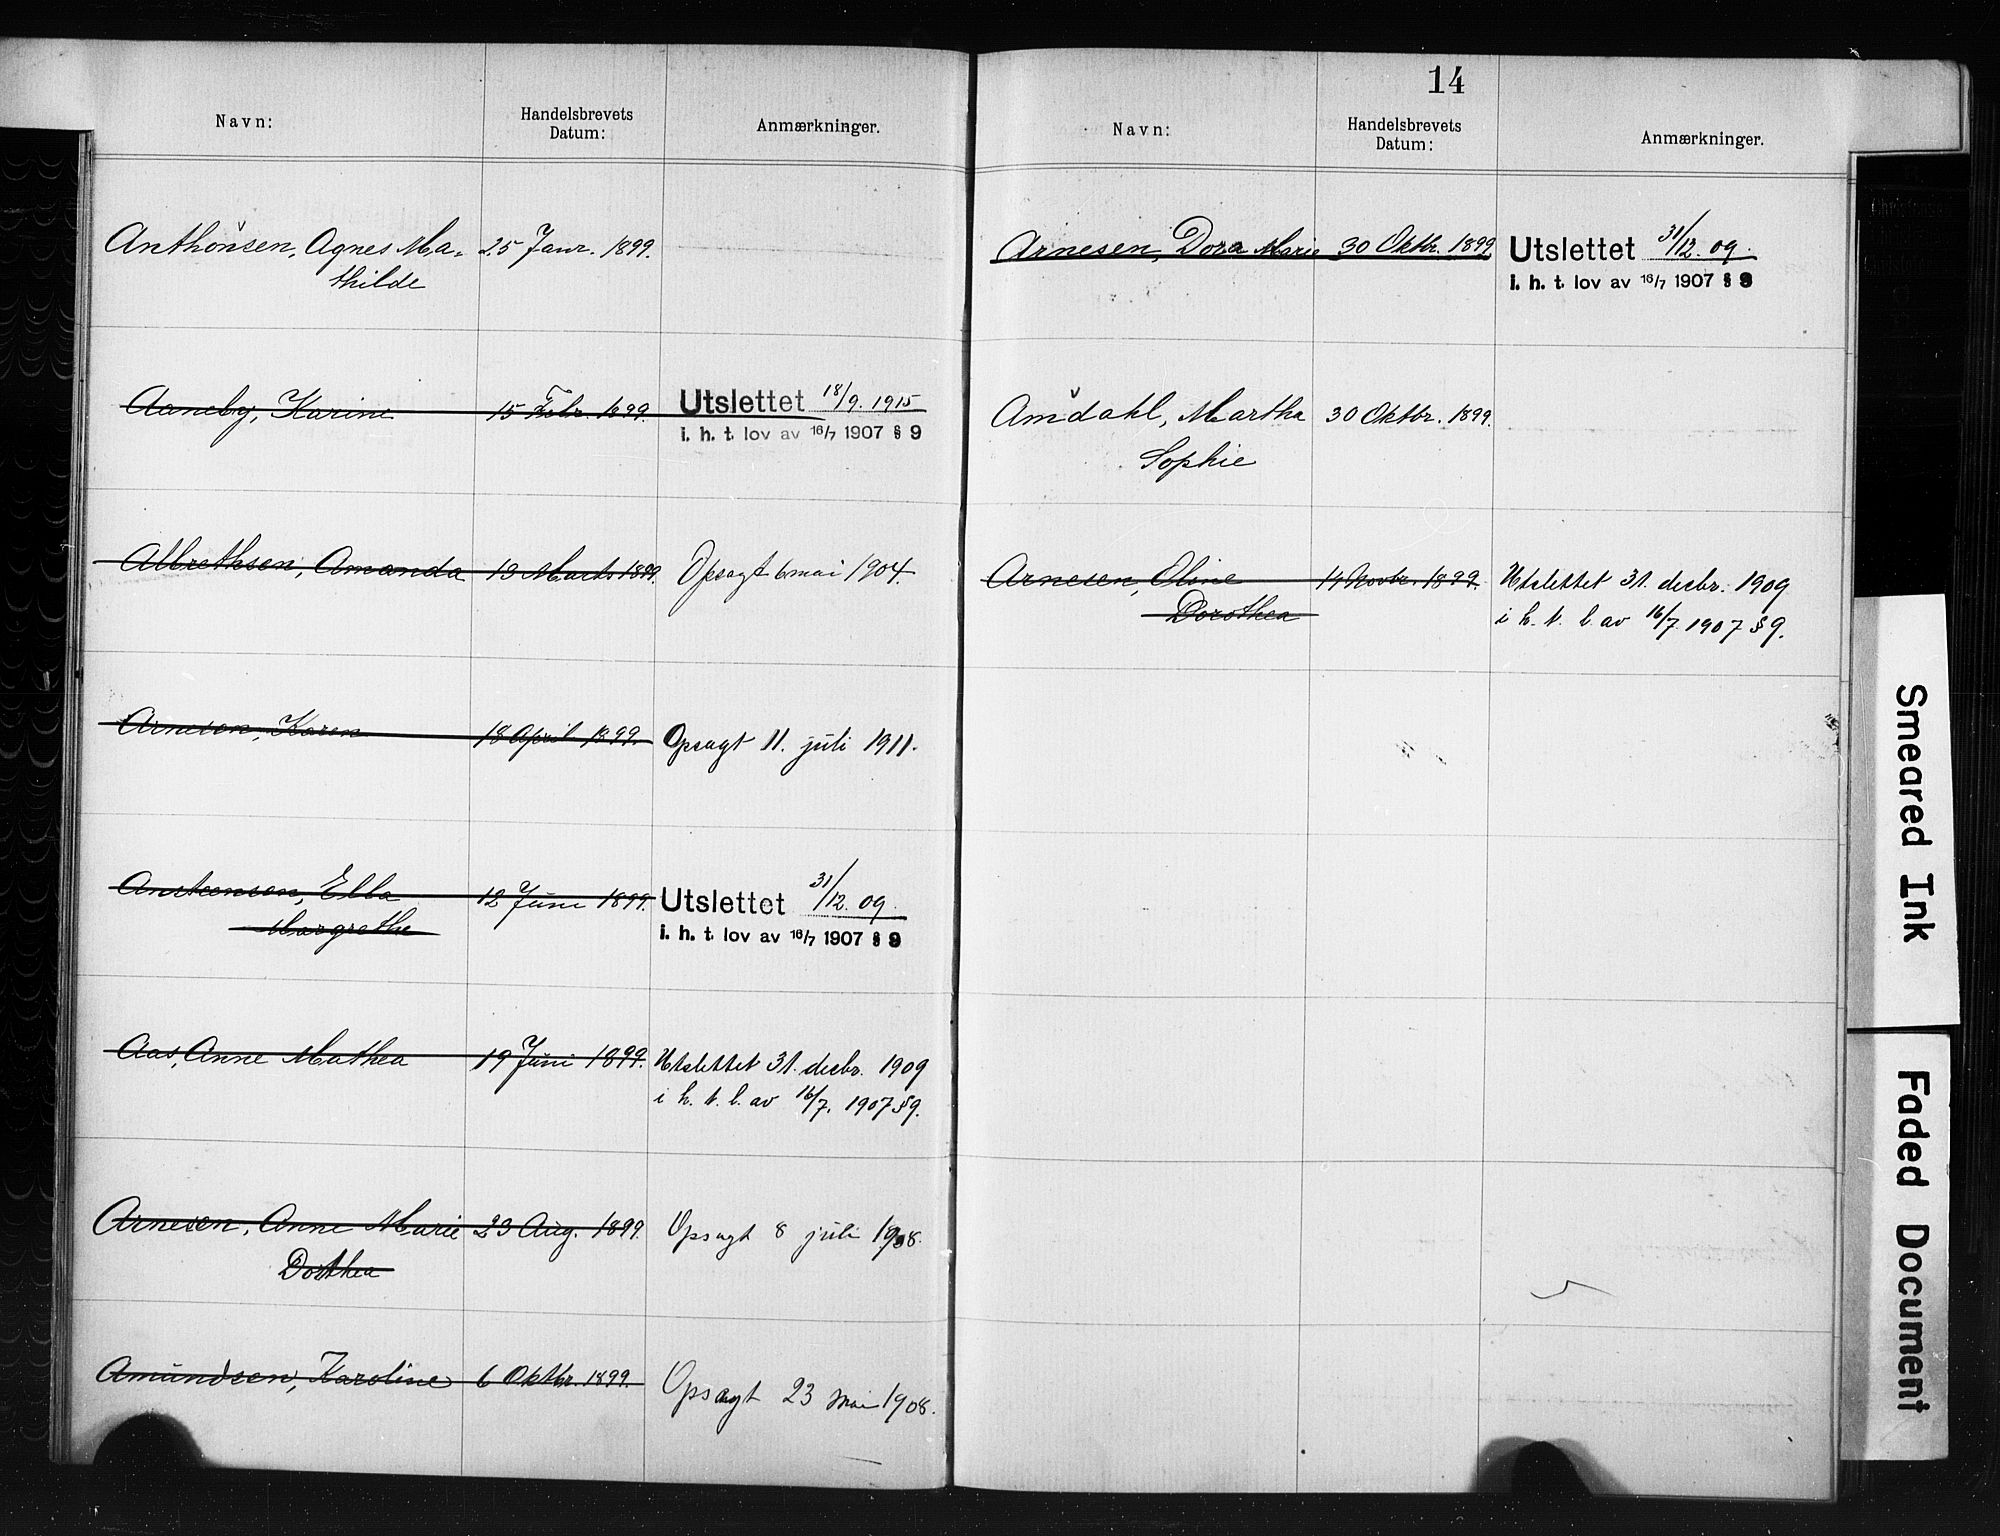 Navn:
Handelsbrevets
Datum:
Anmærkninger.
Anthonsen, Agnes Ma=
thilde
25 Janr. 1899.
Aaneby, Karine
15 Febr. 1899.
Utslettet 18/9. 1915
i. h. t. lov av 16/7 1907 § 9
Albrethsen, Amanda
13 Marts 1899.
Opsagt 6 mai 1904.
Arnesen, Karen
18 April 1899.
Opsagt 11. juli 1911.
Anstensen, Ella
Margrethe
12 Juni 1899.
Utslettet 31/12. 09.
i. h. t. lov av 16/7 1907 § 9
Aas, Anne Mathea
19 Juni 1899.
Utslettet 31. desbr. 1909
i h. t. l. av 16/7. 1907 § 9.
Arnesen, Anne Marie
Dorthea
23 Aug. 1899.
Opsagt 8 juli 1908.
Amundsen, Karoline
6 Oktbr. 1899.
Opsagt 23 mai 1908.
14
Navn:
Handelsbrevets
Datum:
Anmærkninger.
Arnesen, Dora Marie
30 Oktbr. 1899
Utslettet 31/12. 09.
i. h. t. lov av 16/7 1907 § 9
Amdahl, Martha
Sophie
30 Oktbr. 1899.
Arnesen, Oline
Dorothea
14 Novbr. 1899.
Utslettet 31. desbr. 1909
i h. t. l. av 16/7 1907 § 9.
Smeared Ink
Faded Document